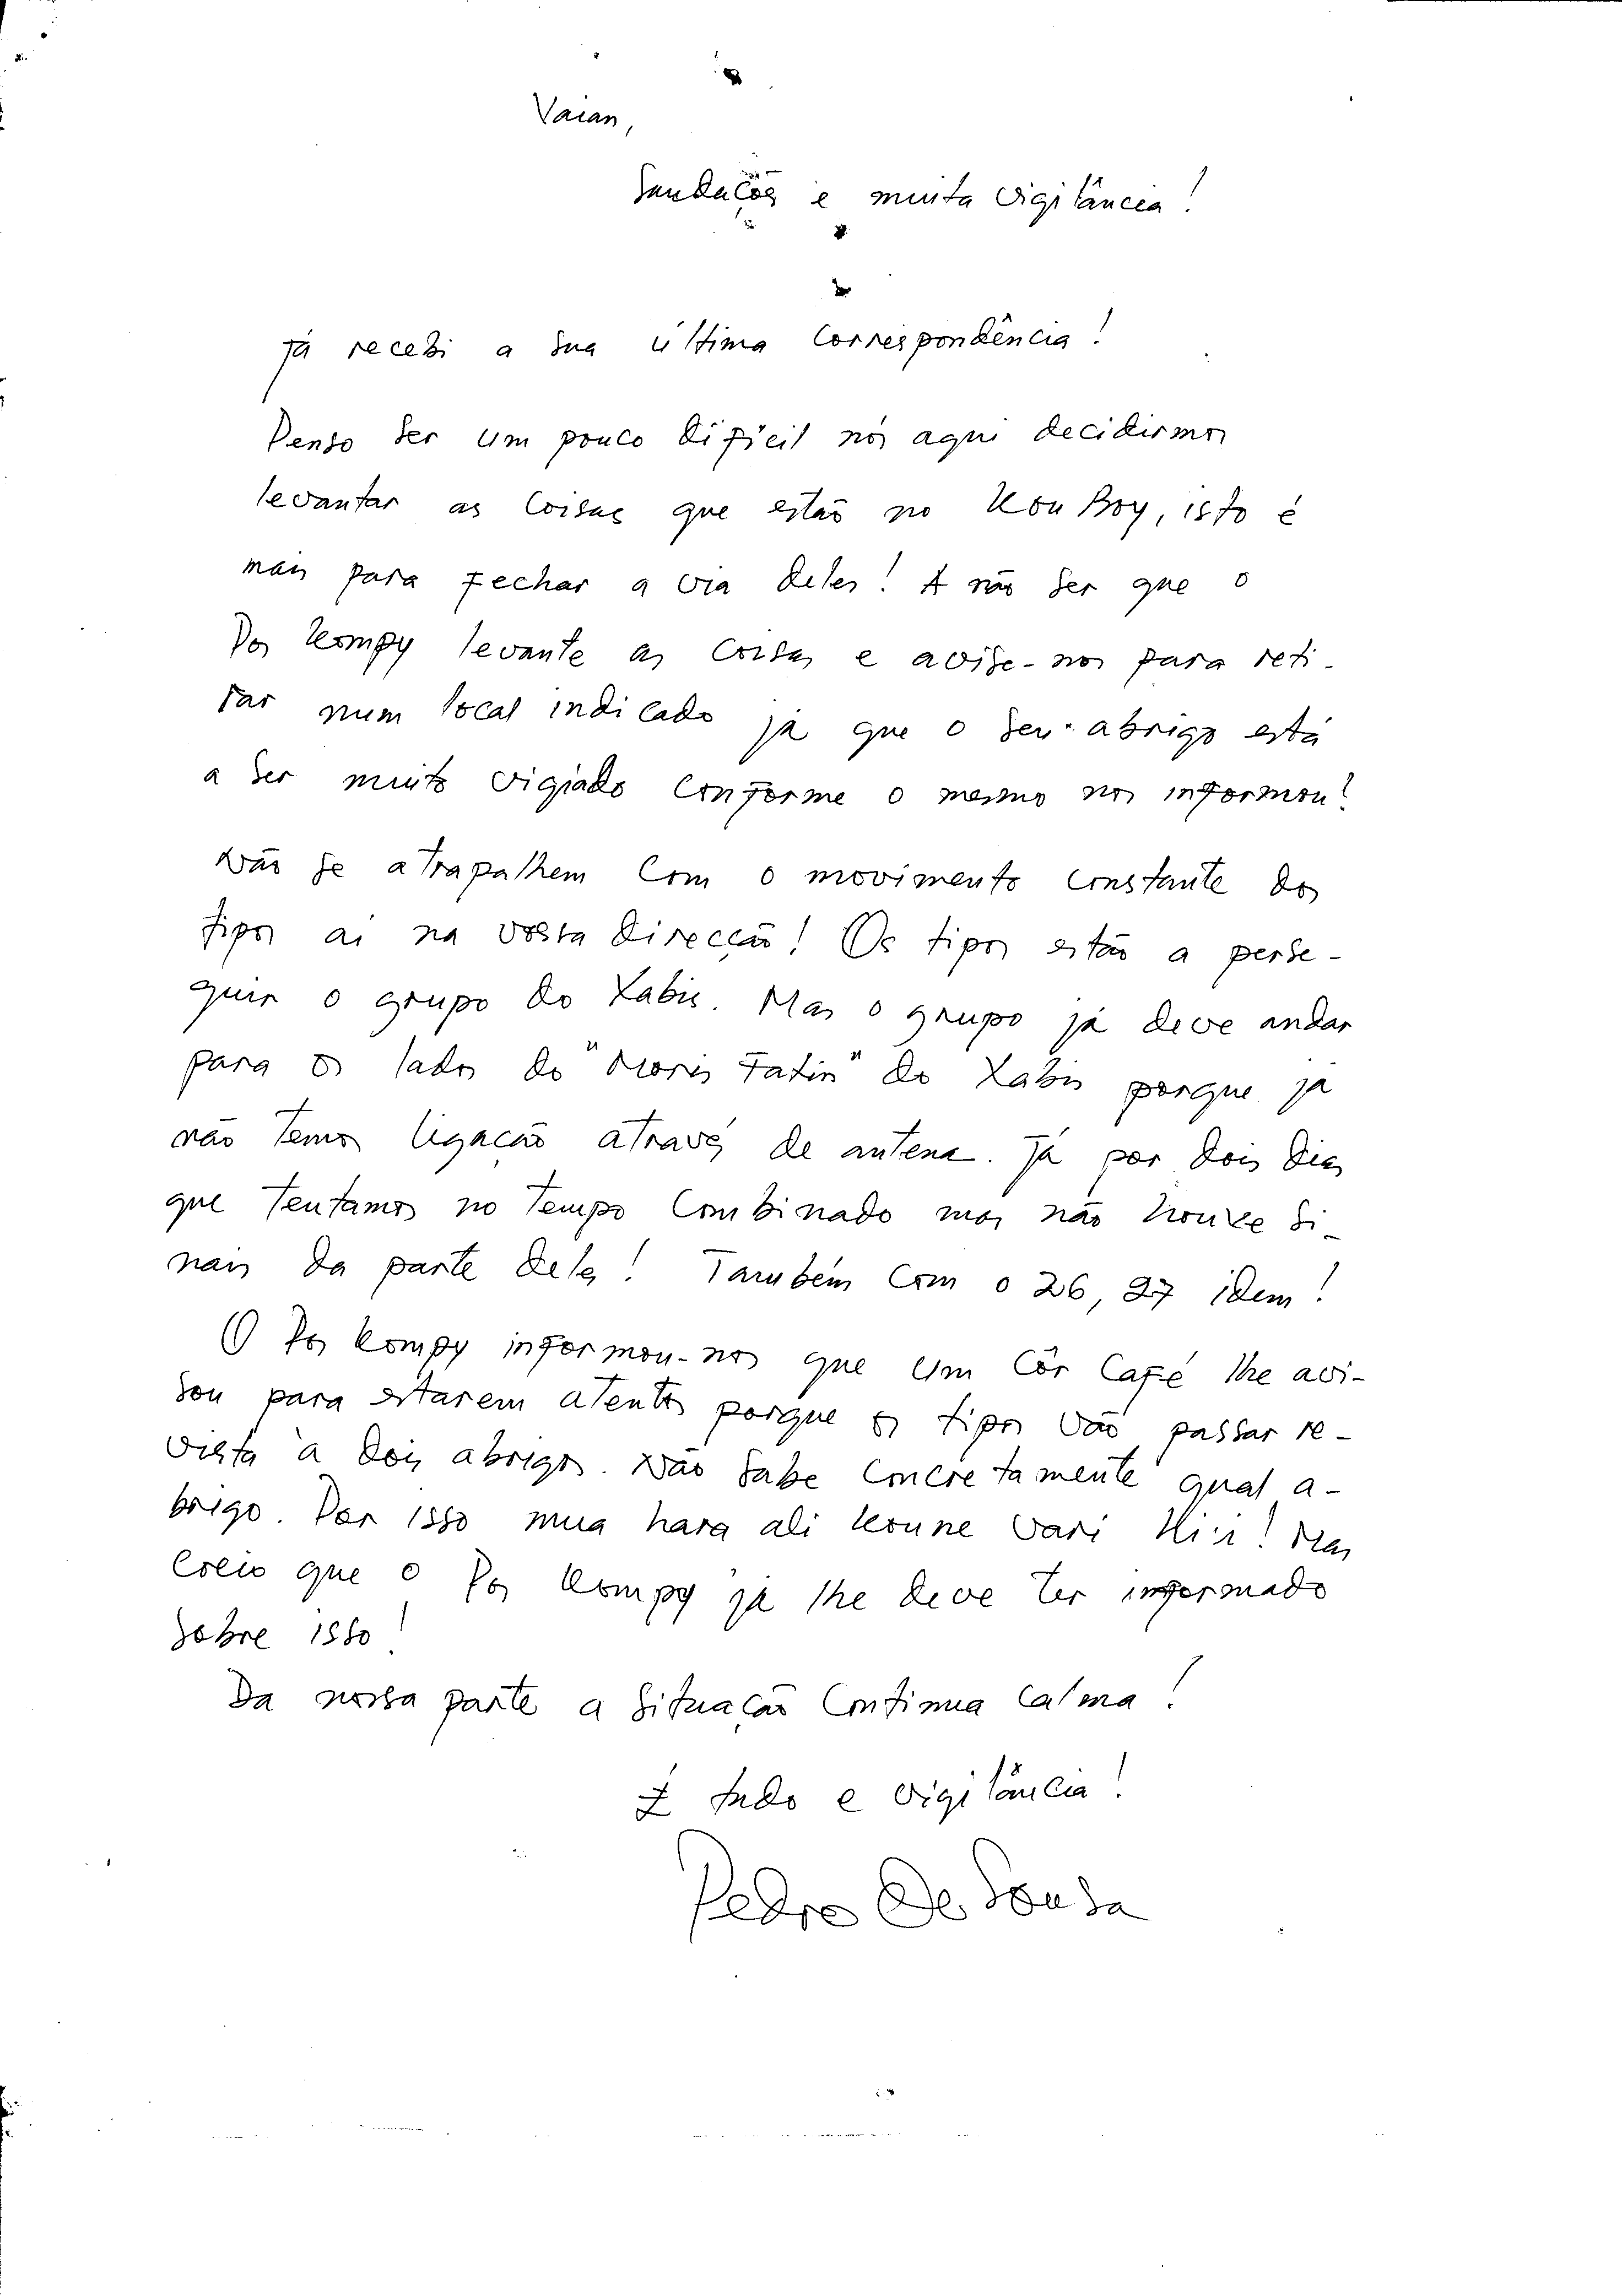 Vaian,
Saudações e muita vigilância!
Já recebi a sua última correspondência!
Penso ser um pouco difícil nós aqui decidirmos
levantar as coisas que estão no Kou Boy, isto é
mais para fechar a via deles! A não ser que o
Pos Kompy levante as coisas e avise-nos para reti-
rar num local indicado já que o seu abrigo está
a ser muito vigiado conforme o mesmo nos informou!
Não se atrapalhem com o movimento constante dos
tipos aí na vossa direcção! Os tipos estão a perse-
guir o grupo do Labis. Mas o grupo já deve andar
para os lados do "Moris Fatin" do Labis porque já
não temos ligação através de antena. Já por dois dias
que tentamos no tempo combinado mas não houve si-
nais da parte deles! Também com o 26, 27 idem!
O Pos Kompy informou-nos que um Côr Café lhe avi-
sou para estarem atentos porque os tipos vão passar re-
vista à dois abrigos. Não sabe concretamente qual a-
brigo. Por isso mua hara ali koune vari Mas
creio que o Pos Kompy já lhe deve ter informado
sobre isso!
Da nossa parte a situação continua calma!
É tudo e vigilância!
Pedro De Sousa